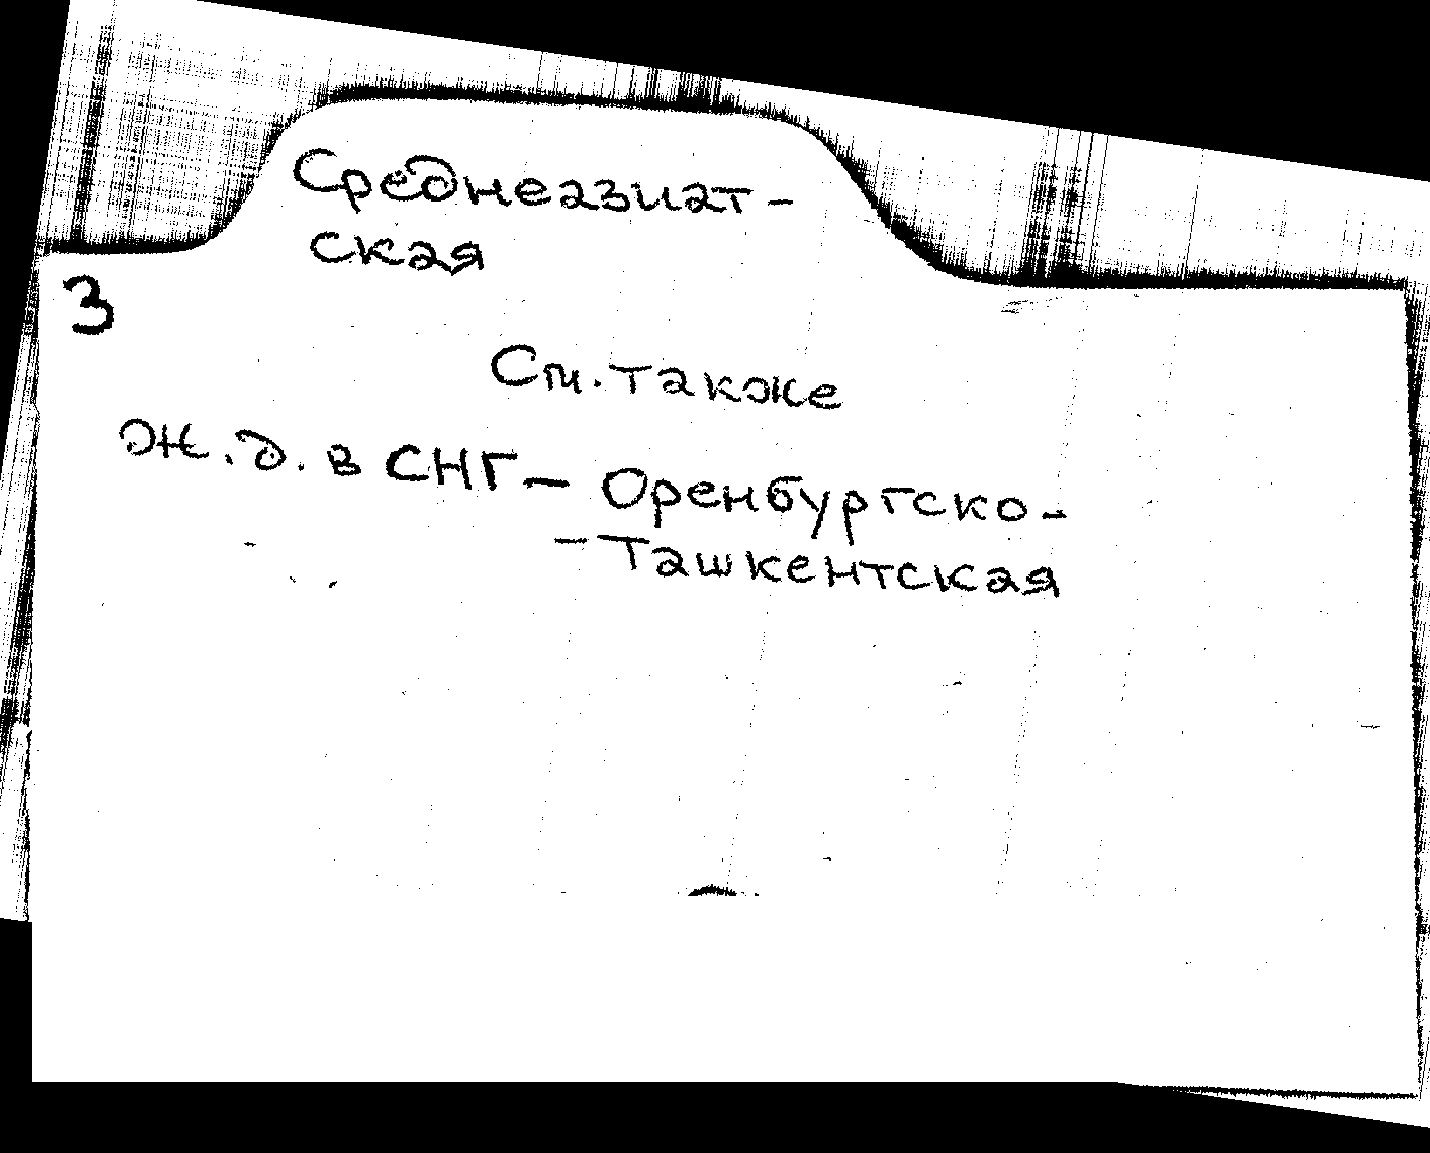 Среднеазиат-
ская
3
См. также
Ж.д. в СНГ — Оренбургско-
- Ташкентская